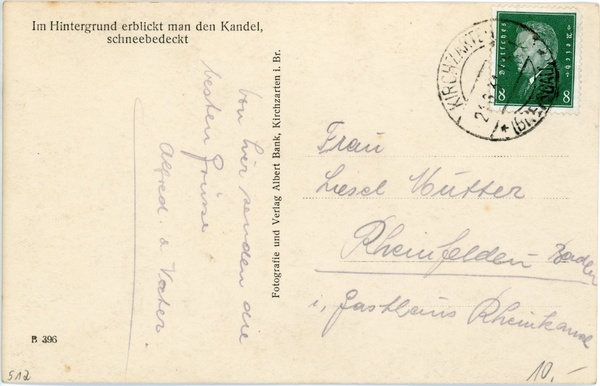 Im Hintergrund erblickt man den Kandel,
schneebedeckt
von hier senden die
besten Grüsse
Alfred u Vater.
Fotografie und Verlag Albert Bank, Kirchzarten i. Br.
Deutsches Reich
8 8
KIRCHZARTEN
Frau
Liesel Mutter
Rheinfelden Baden
i, Gasthaus Rheinkanal
B 396
512
10.-